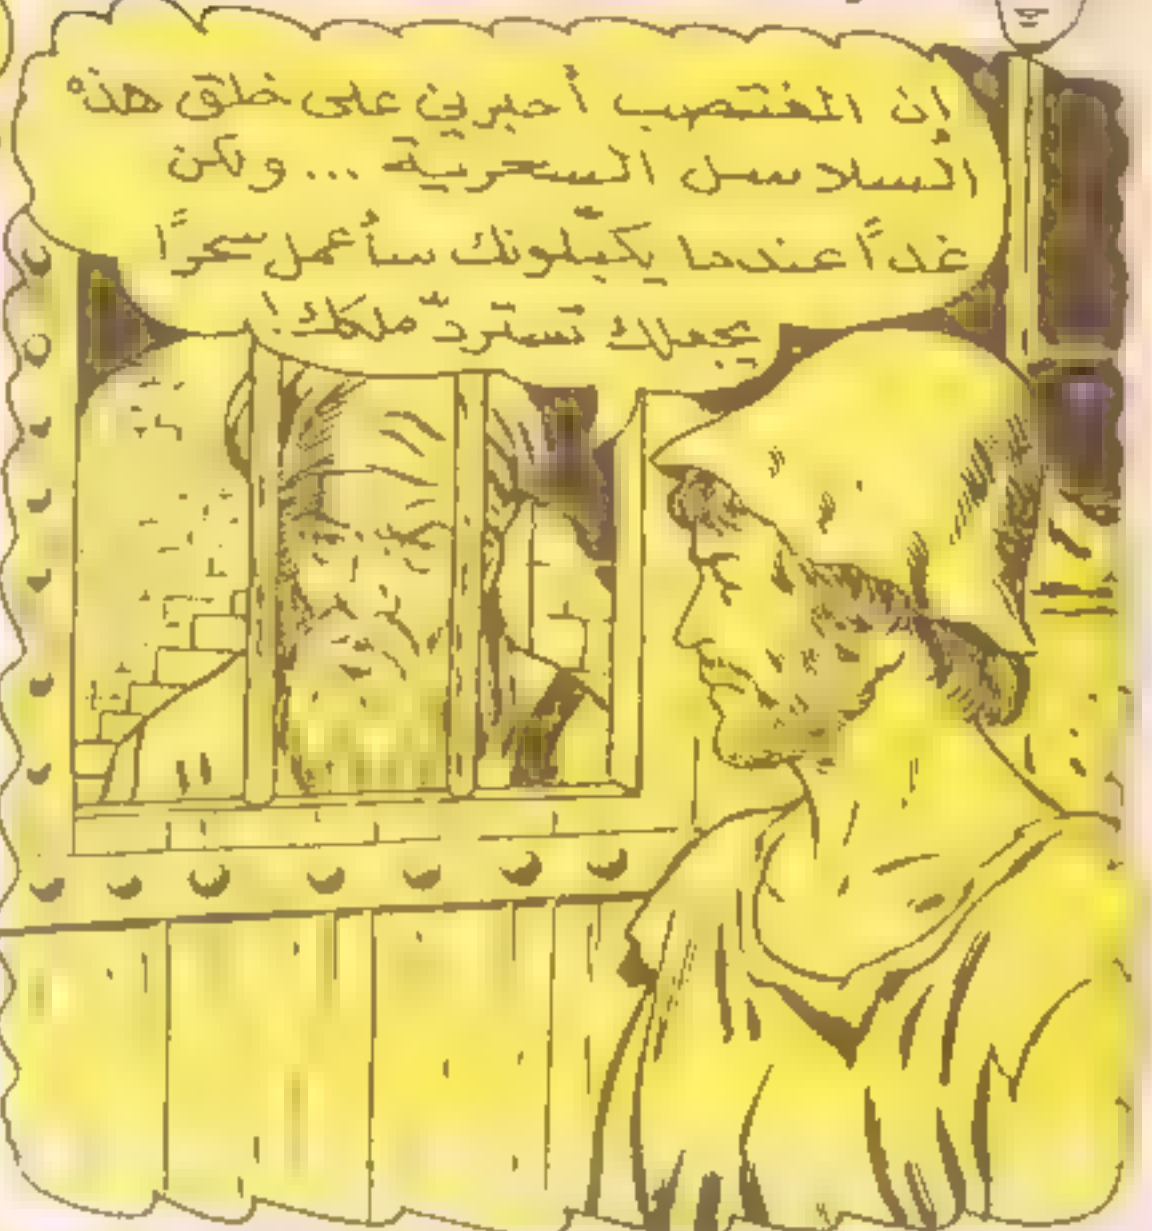 إن المغتصب أجبرني على خلق هذه
السلاسل السحرية ... ولكن
غداً عندما يكبّلونك سأعمل سحرًا
يجعلك تستردّ ملكك!